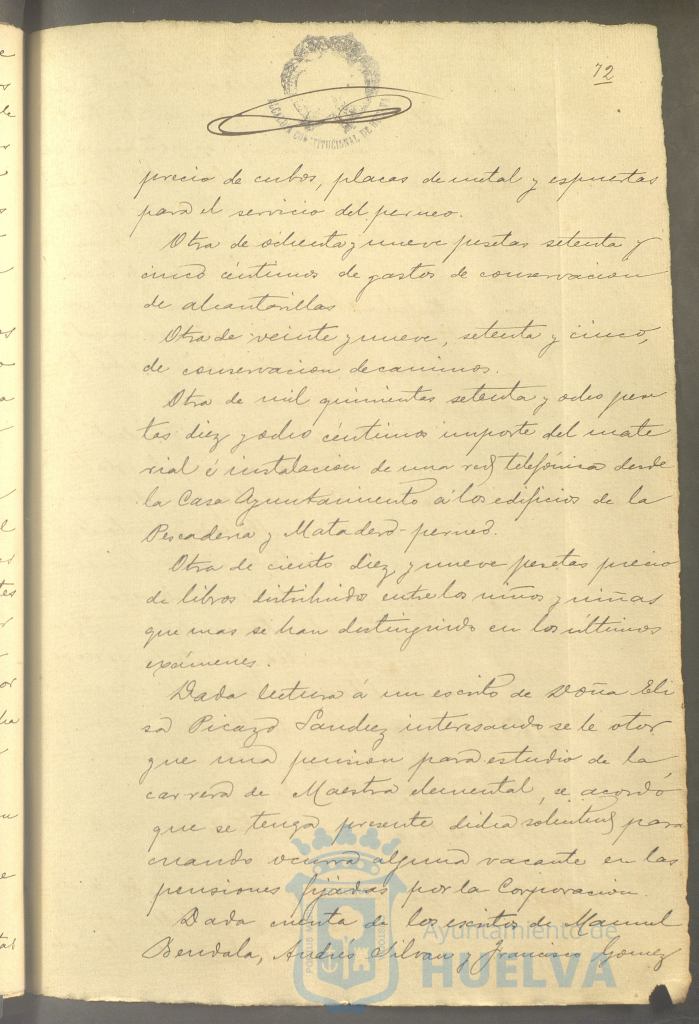 72
ALCALDIA CONSTITUCIONAL DE HUELVA
precio de cubos, placas de metal y espuertas
para el servicio del perneo.
Otra de ochenta y nueve pesetas setenta y
cinco céntimos de gastos de conservacion
de alcantarillas
Otra de veinte y nueve, setenta y cinco,
de conservacion de caminos.
Otra de mil quinientas setenta y ocho pese
tas diez y ocho céntimos importe del mate
rial é instalacion de una red telefónica desde
la Casa Ayuntamiento á los edificios de la
Pescaderia y Matadero-perneo.
Otra de ciento diez y nueve pesetas precio
de libros distribuidos entre los niños y niñas
que mas se han distinguido en los últimos
exámenes.
Dada lectura á un escrito de Doña Eli
sa Picazo Sanchez interesando se le otor
gue una pension para estudio de la
carrera de Maestra elemental, se acordó
que se tenga presente dicha solicitud para
cuando ocurra alguna vacante en las
pensiones fijadas por la Corporacion.
Dada cuenta de los escritos de Manuel
Bendala, Andres Silvan y Francisco Gomez
Ayuntamiento de
HUELVA